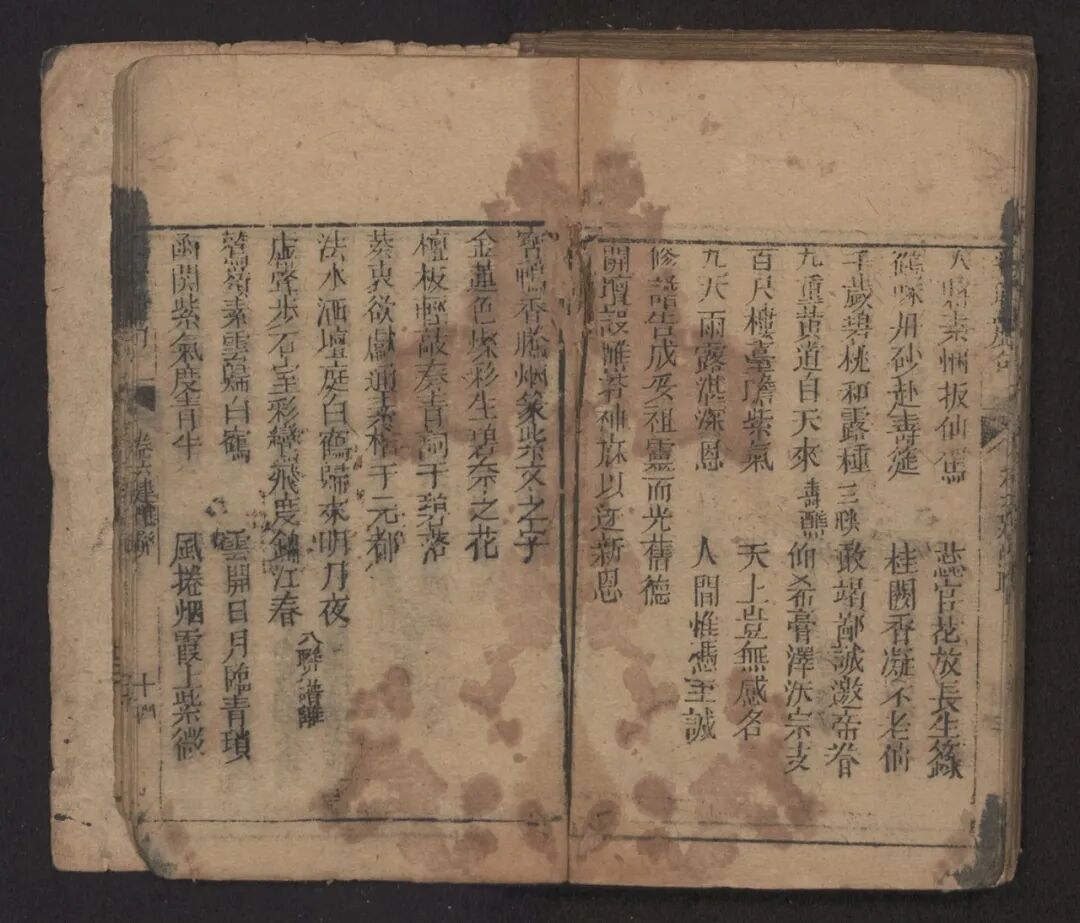 仙駕 蕊宮花放長生籙
丹砂赴壽筵 桂闕香凝不老仙
千歲碧桃和露種 三映敢竭鄙誠邀帝眷
九重黃道自天來 壽醮 仰希膏澤沃宗支
百尺樓臺瞻紫氣 天上豈無感名
九天雨露湛深恩 人間惟憑至誠
修齋告成妥祖靈而光舊德
開壇設醮答神庥以迓新恩
寶鴨香騰烟篆紫文之字
金蓮色燦彩生碧奈之花
檀板輕敲奏青詞于碧落
欲獻通于元都
法水洒壇庭白鶴歸來明月夜
虛聲步石室彩鸞飛度錦江春
八聯譜雜
素雲歸白鶴 雲開日月臨青瑣
函開紫氣度青牛 風捲烟霞上紫微
十四